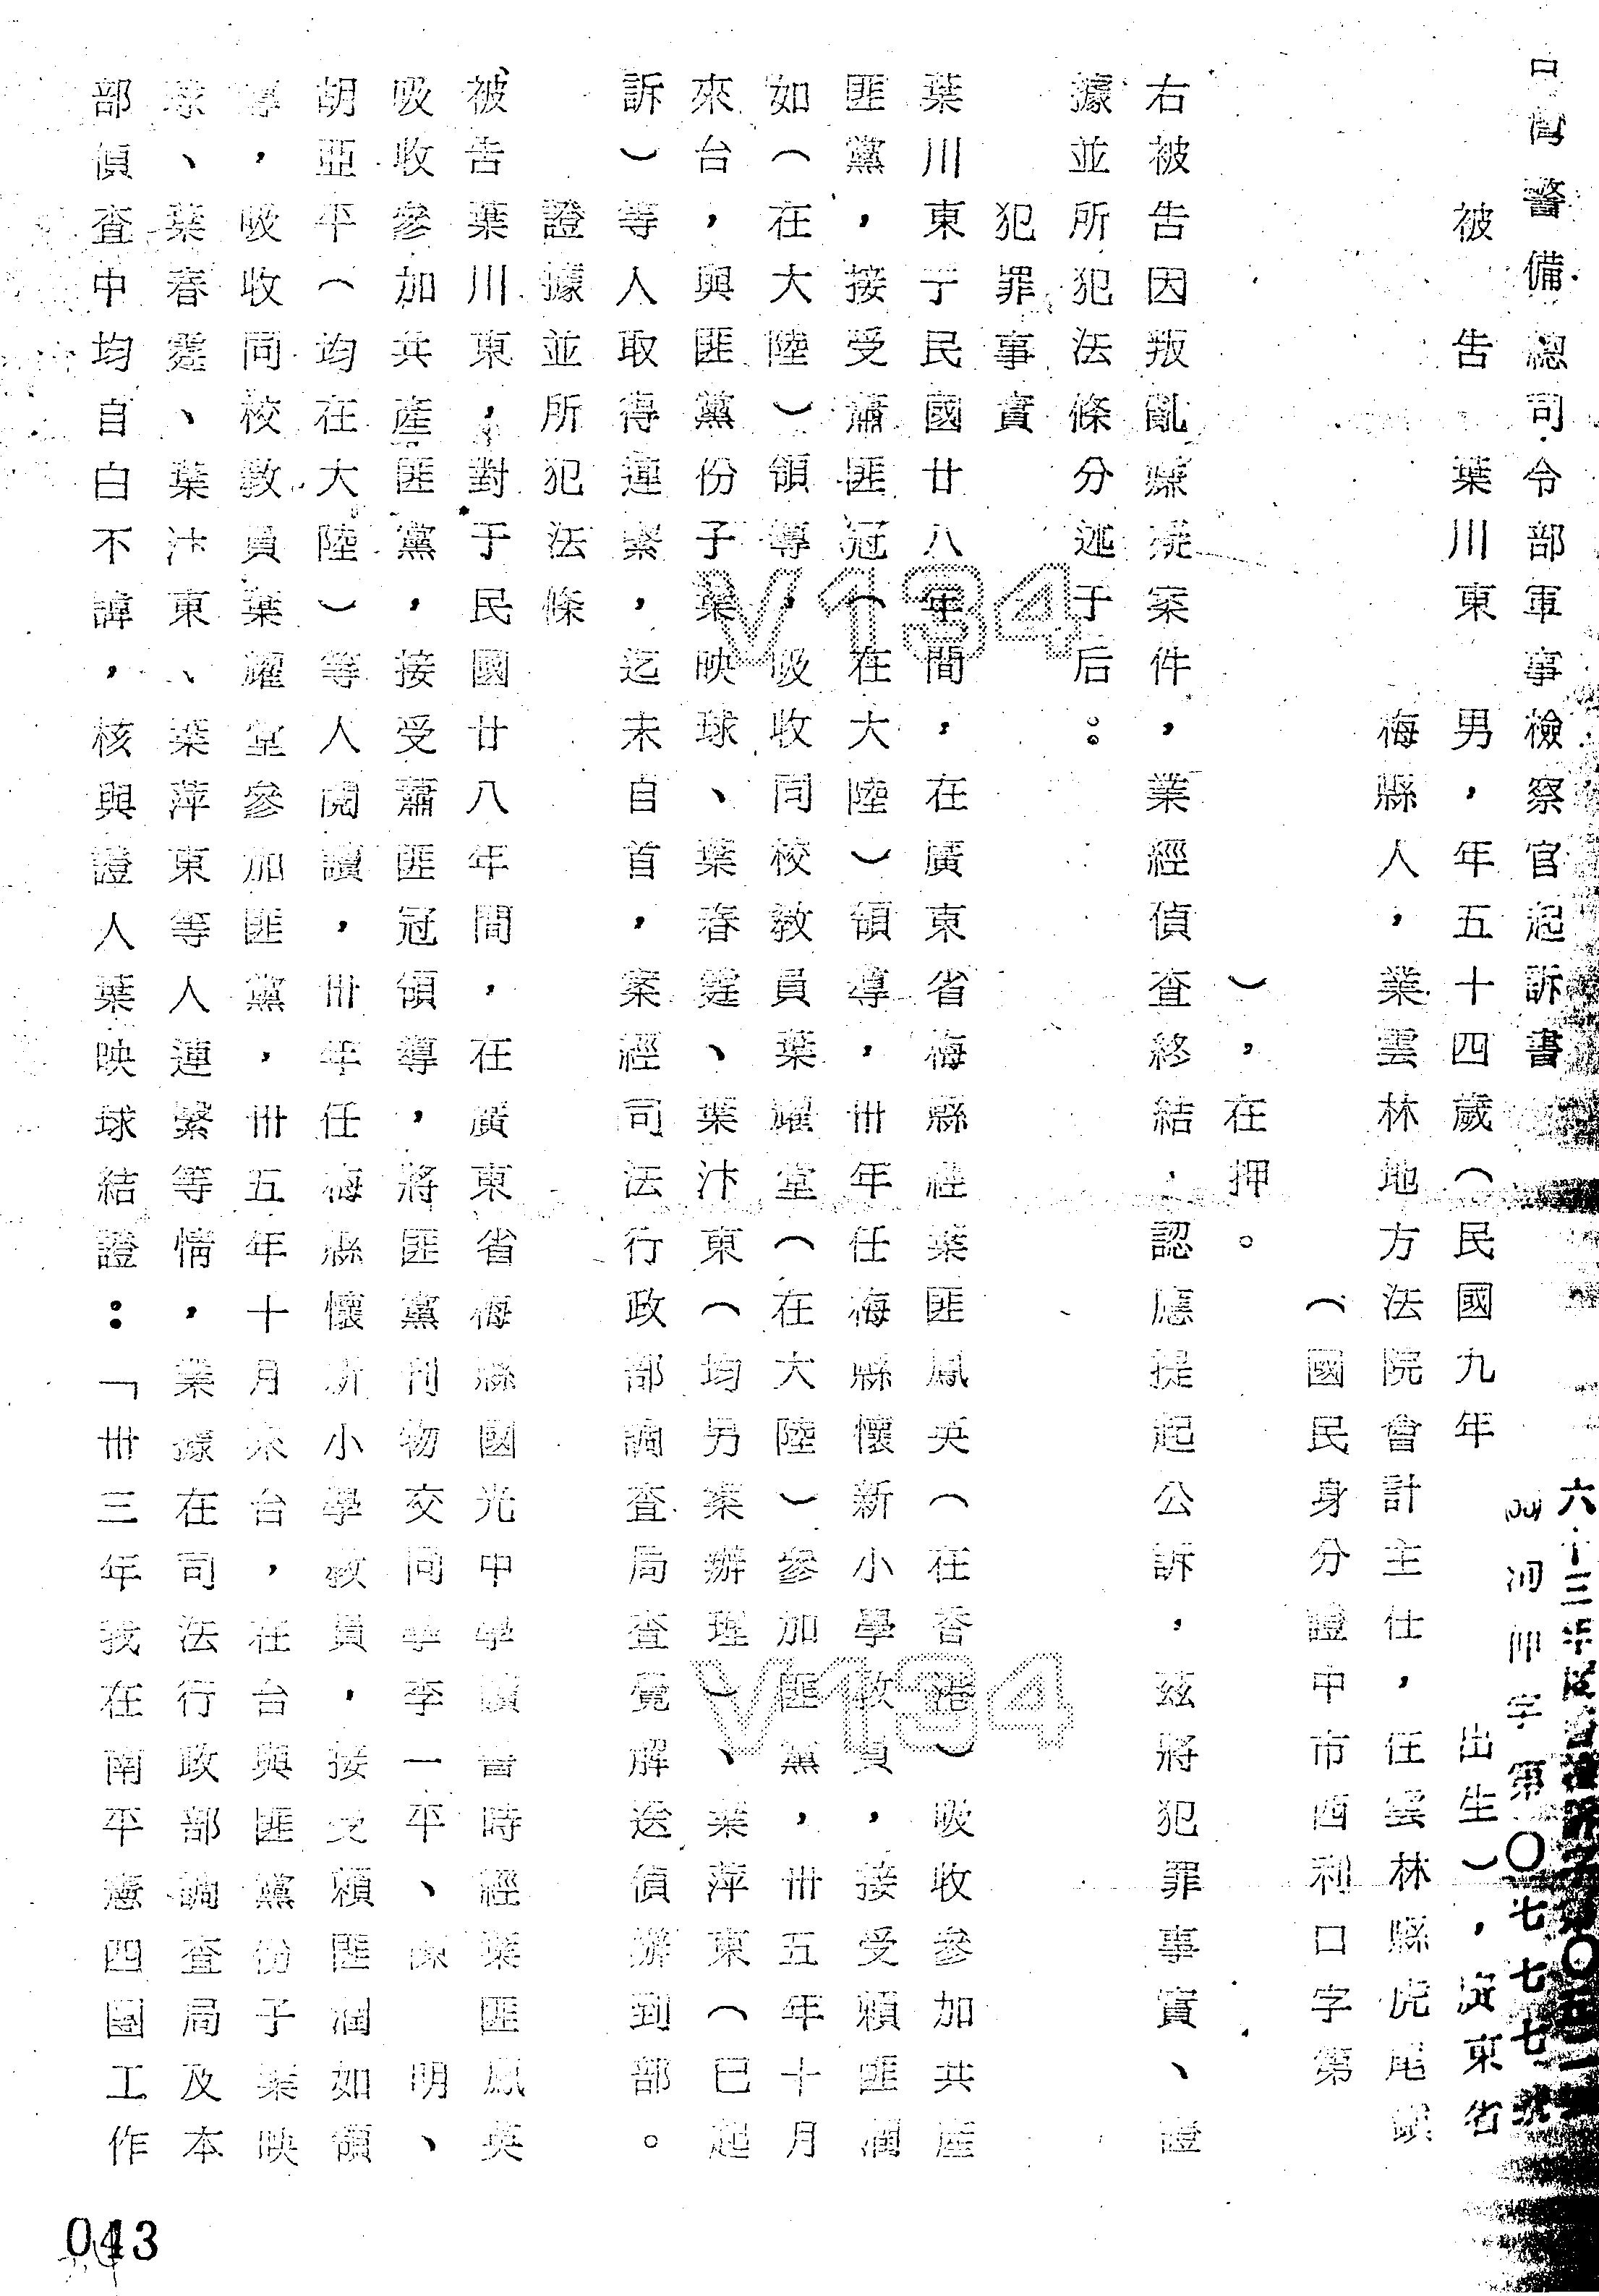 警備總司令部軍事檢察官起訴書
六十三年
字第〇七七七號
被告 葉川東 男，年五十四歲（民國九年 出生），廣東省
梅縣人，業雲林地方法院會計主任，住雲林縣虎尾鎮
（國民身分證中市酉利口字第
），在押。
右被告因叛亂嫌疑案件，業經偵查終結，認應提起公訴，茲將犯罪事實、證
據並所犯法條分述于后：
犯罪事實
葉川東于民國廿八年間，在廣東省梅縣經葉匪鳳英（在香港）吸收參加共產
匪黨，接受蕭匪冠（在大陸）領導，卅年任梅縣懷新小學教員，接受賴匪潤
如（在大陸）領導，吸收同校教員葉耀堂（在大陸）參加匪黨，卅五年十月
來台，與匪黨份子葉映球、葉春霆、葉汴東（均另案辦理）、葉萍東（已起
訴）等人取得連繫，迄未自首，案經司法行政部調查局查覺解送偵辦到部。
證據並所犯法條
被告葉川東，對于民國廿八年間，在廣東省梅縣國光中學讀書時經葉匪鳳英
吸收參加共產匪黨，接受蕭匪冠領導，將匪黨刊物交同學李一平、明、
胡亞平（均在大陸）等人閱讀，卅年任梅縣懷新小學教員，接受賴匪潤如領
導，吸收同校教員葉耀堂參加匪黨，卅五年十月來台，在台與匪黨份子葉映
球、葉春霆、葉汴東、葉萍東等人連繫等情，業據在司法行政部調查局及本
部偵查中均自白不諱，核與證人葉映球結證：「卅三年我在南平憲四團工作
V134
V134
043